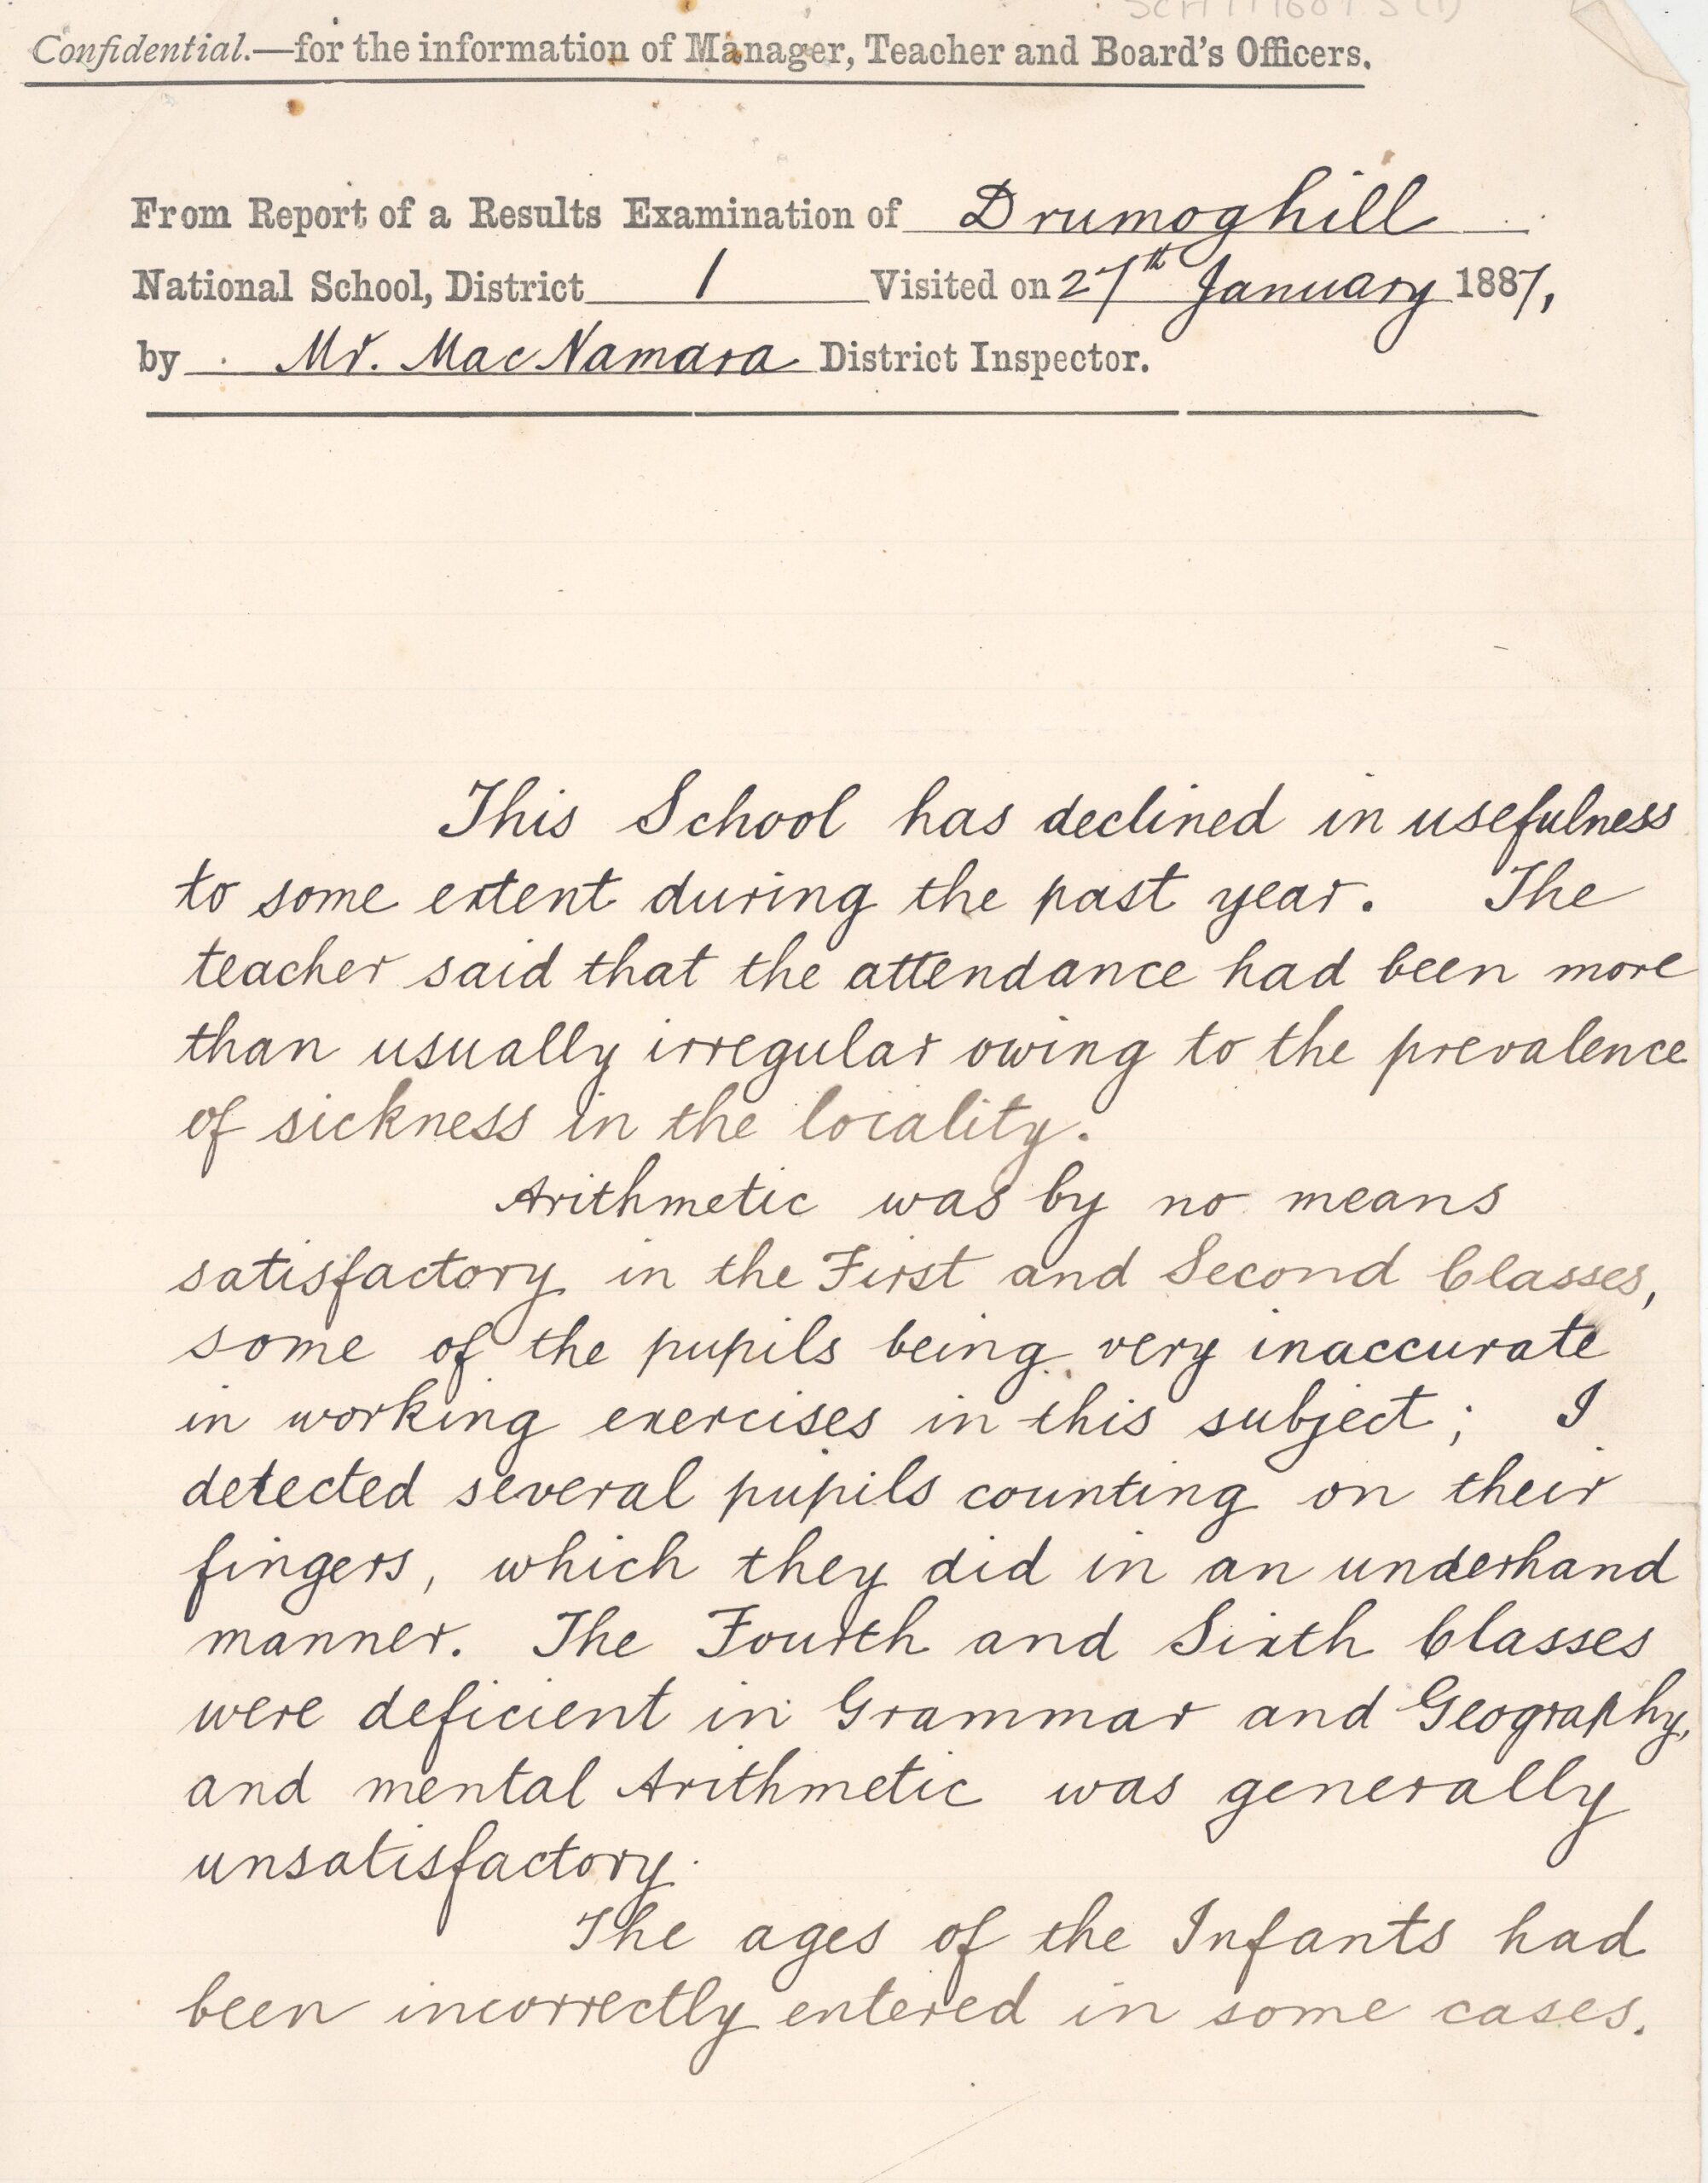 Confidential.—for the information of Manager, Teacher and Board's Officers.
From Report of a Results Examination of Drumoghill
National School, District 1 Visited on 27th January 1887,
by Mr. MacNamara District Inspector.
This School has declined in usefulness
to some extent during the past year. The
teacher said that the attendance had been more
than usually irregular owing to the prevalence
of sickness in the locality.
Arithmetic was by no means
satisfactory in the First and Second Classes,
some of the pupils being very inaccurate
in working exercises in this subject; I
detected several pupils counting on their
fingers, which they did in an underhand
manner. The Fourth and Sixth Classes
were deficient in Grammar and Geography,
and mental Arithmetic was generally
unsatisfactory.
The ages of the Infants had
been incorrectly entered in some cases.